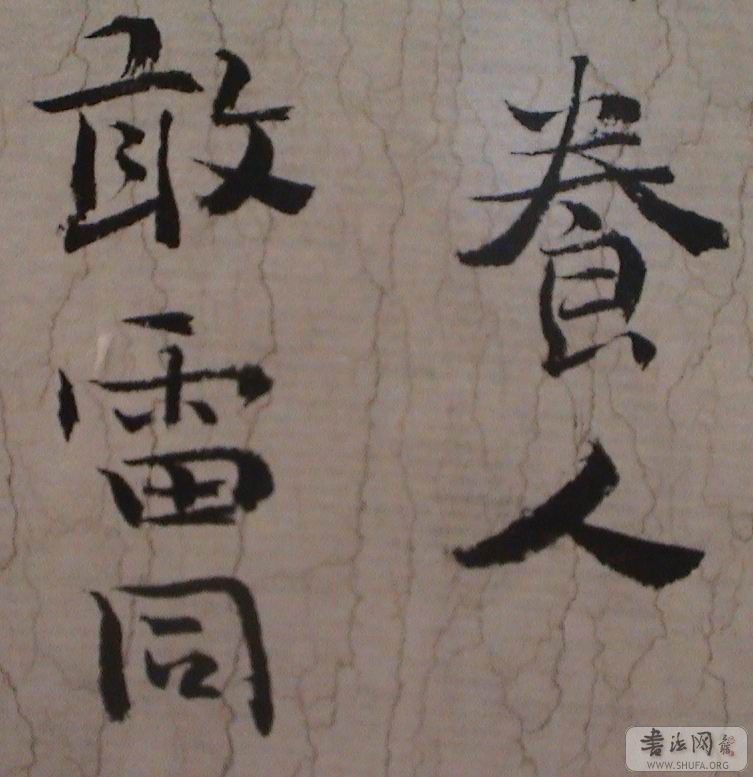 養人
敢雷同
書法网
WWW.SHUFA.ORG